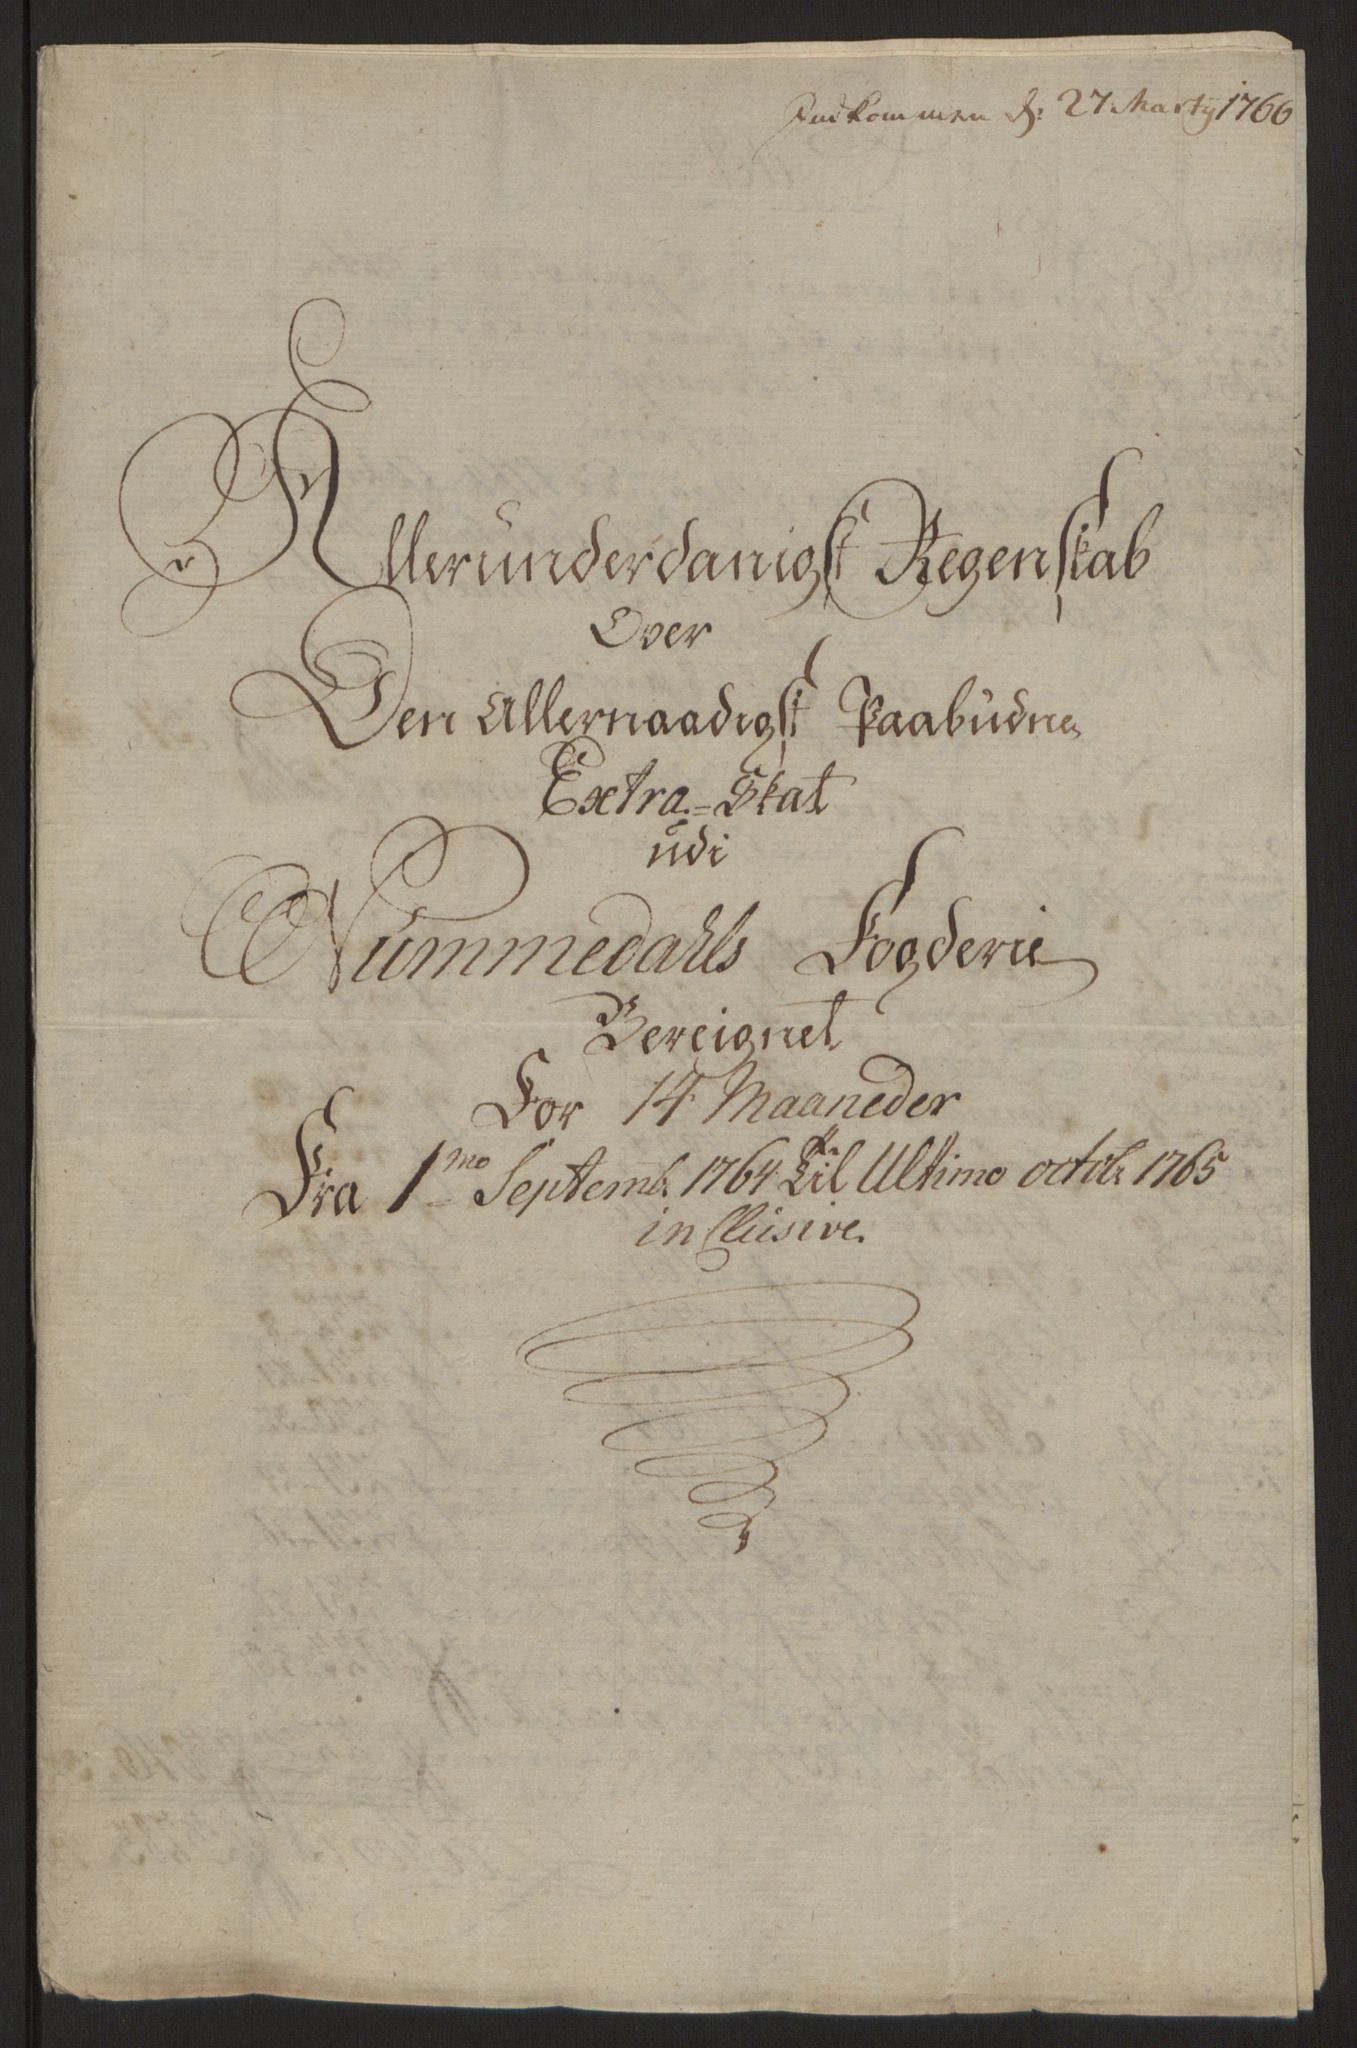 Indkommen d: 27 Martij 1766
Allerunderdanigst Regenskab
Over
Den Allernaadigst Paabudne
Extra-Skat
udi
Nummedahls Fogderie
Bereignet
For 14 Maaneder
Fra 1mo Septemb. 1764 til Ultimo octobr 1765
inclusive